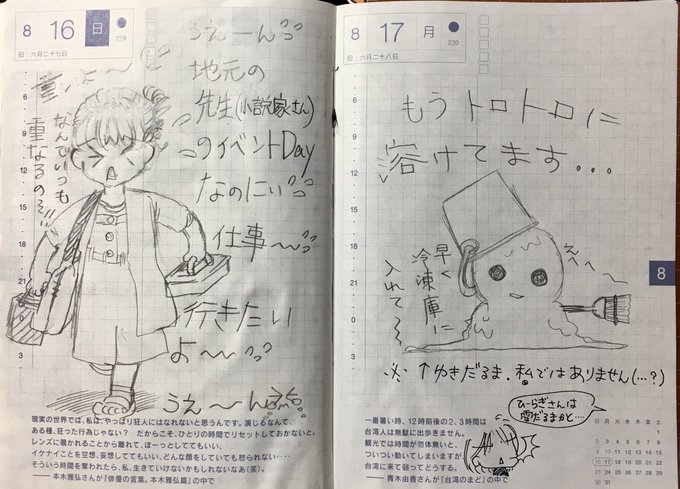 8 16 日
229
旧：六月二十七日
うえーん
地元の
先生(小説家さん)
のイベントDay
なのにぃ
仕事〜
行きたい
よ〜
うえ〜ん
重いよ〜
なんでいつも
重なるのぞ!!
6
9
12
15
18
21
0
3
現実の世界では、私は、やっぱり狂人にはなれないと思うんです。演じるなんて、
ある種、狂った行為じゃない？　だからこそ、ひとりの時間でリセットしておかないと。
レンズに覗かれることから離れて、ぼーっとしててもいい。
イケナイことを空想、妄想しててもいい、どんな顔をしていても怒られない‥‥
そういう時間を奪われたら、私、生きていけないかもしれないなあ(笑)。
——本木雅弘さんが『俳優の言葉。本木雅弘篇』の中で
8 17 月
230
旧：六月二十八日
もうトロトロに
溶けてます...
早く
冷凍庫に
入れて〜
えへ〜
6
9
12
15
18
21
0
3
8
※ ↑ゆきだるま.私ではありません(...?)
ひーらぎさんは
雪だるまかと...
一番暑い時、12時前後の2、3時間は
台湾人は無駄に出歩きません。
観光では時間が勿体無いと、
ついつい動いてしまいますが
台湾に来て弱ってどうする。
——青木由香さんが『台湾のまど』の中で
日 月 火 水 木 金 土
1
2 3 4 5 6 7 8
9 10 11 12 13 14 15
16 17 18 19 20 21 22
23 24 25 26 27 28 29
30 31